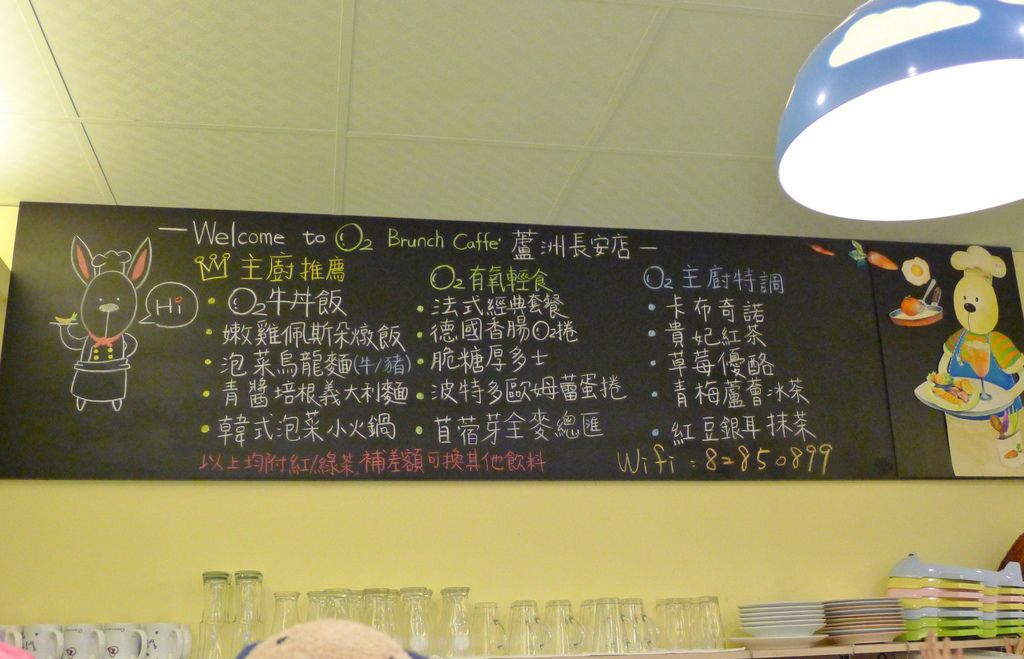 — Welcome to O2 Brunch Caffe' 蘆洲長安店 —
Hi
主廚推薦
• O2牛丼飯
• 嫩雞佩斯朵燉飯
• 泡菜烏龍麵(牛/豬)
• 青醬培根義大利麵
• 韓式泡菜小火鍋
O2有氧輕食
• 法式經典套餐
• 德國香腸O2捲
• 脆糖厚多士
• 波特多歐姆蕾蛋捲
• 苜蓿芽全麥總匯
O2主廚特調
• 卡布奇諾
• 貴妃紅茶
• 草莓優酪
• 青梅蘆薈冰茶
• 紅豆銀耳抹茶
以上均附紅/綠茶,補差額可換其他飲料
Wifi：82850899